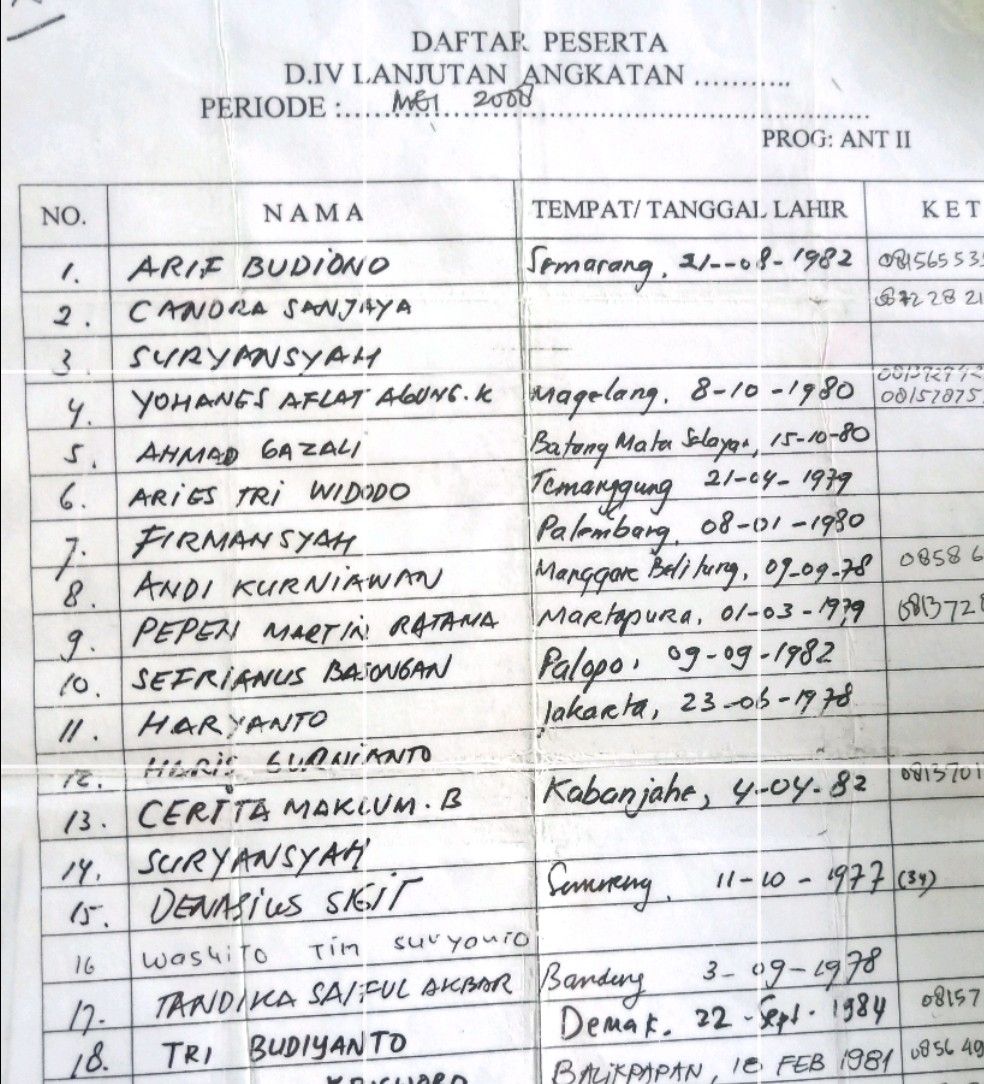 DAFTAR PESERTA
D.IV LANJUTAN ANGKATAN ...........
PERIODE :.... MEI 2008
PROG: ANT II
NO. NAMA TEMPAT/ TANGGAL LAHIR KET
1. ARIF BUDIONO Semarang, 21--08-1982 081565535
2. CANDRA SANJAYA
3. SURYANSYAH
4. YOHANES AFLAT AGUNG. K Magelang. 8-10-1980 08157875
5. AHMAD GAZALI Batang Mata Selayar, 15-10-80
6. ARIES TRI WIDODO Temanggung 21-04-1979
7. FIRMANSYAH Palembang, 08-01-1980
8. ANDI KURNIAWAN Manggare Belitung, 09-09-78 08586
9. PEPEN MARTIN RATAMA Martapura, 01-03-1979 0813728
10. SEFRIANUS BAJONGAN Palopo, 09-09-1982
11. HARYANTO Jakarta, 23-06-1978
12. HARIS GURNIANTO
13. CERITA MAKLUM. B Kabanjahe, 4-04-82 0813701
14. SURYANSYAH
15. DENASIUS SIGIT Semarang, 11-10-1977 (34)
16 Waskito Tim suryonto
17. TANDIKA SAIFUL AKBAR Bandung 3-09-1978
18. TRI BUDIYANTO Demak. 22-Sept. 1984 08157
BALIKPAPAN, 18 FEB 1981 0856 49